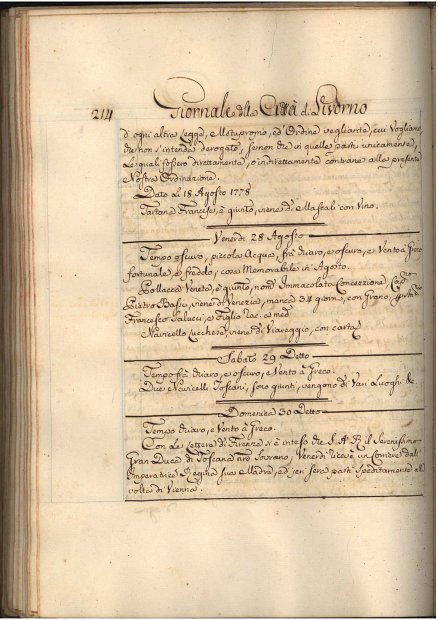 214 Giornale della Città di Livorno
d'ogni altra Legge, Motuproprio, ed' Ordine vegliante, cui Vogliamo,
che non s'intenda derogato, se non che in quelle parti unicamente,
Le quali fossero direttamente, o indirettamente contrarie alla presente
Nostra Ordinazione.
Dato al 18 Agosto 1778
Tartana Francese, è giunto, viene di con Vino.
Venerdì 28 Agosto
Tempo oscuro, piccola Acqua, frà chiaro, e oscuro, e Vento à Greco
fortunale, e freddo, cosa Memorabile in Agosto.
Pollacca Veneta, è giunto, nom.ta Immacolata Concezzione
Pietro viene di Venezia, manca 34 giorni, con Grano,
Francesco e Figlio
Navicello Lucchese, viene di Viareggio, con carta
Sabato 29 Detto
Tempo frà chiaro, e oscuro, e Vento à Greco.
Due Navicelli Toscani, sono giunti, vengono di Varj Luoghi &c.
Domenica 30 Detto
Tempo chiaro, e Vento à Greco.
Con Le Lettere di Firenze si è inteso che S. A. R. il Serenissimo
Gran Duca di Toscana Nro Sovrano, Venerdì ricevè un Corriere dall'
Imperatrice Regina sua Madre, ed jeri sera partì speditamente alla
volta di Vienna.